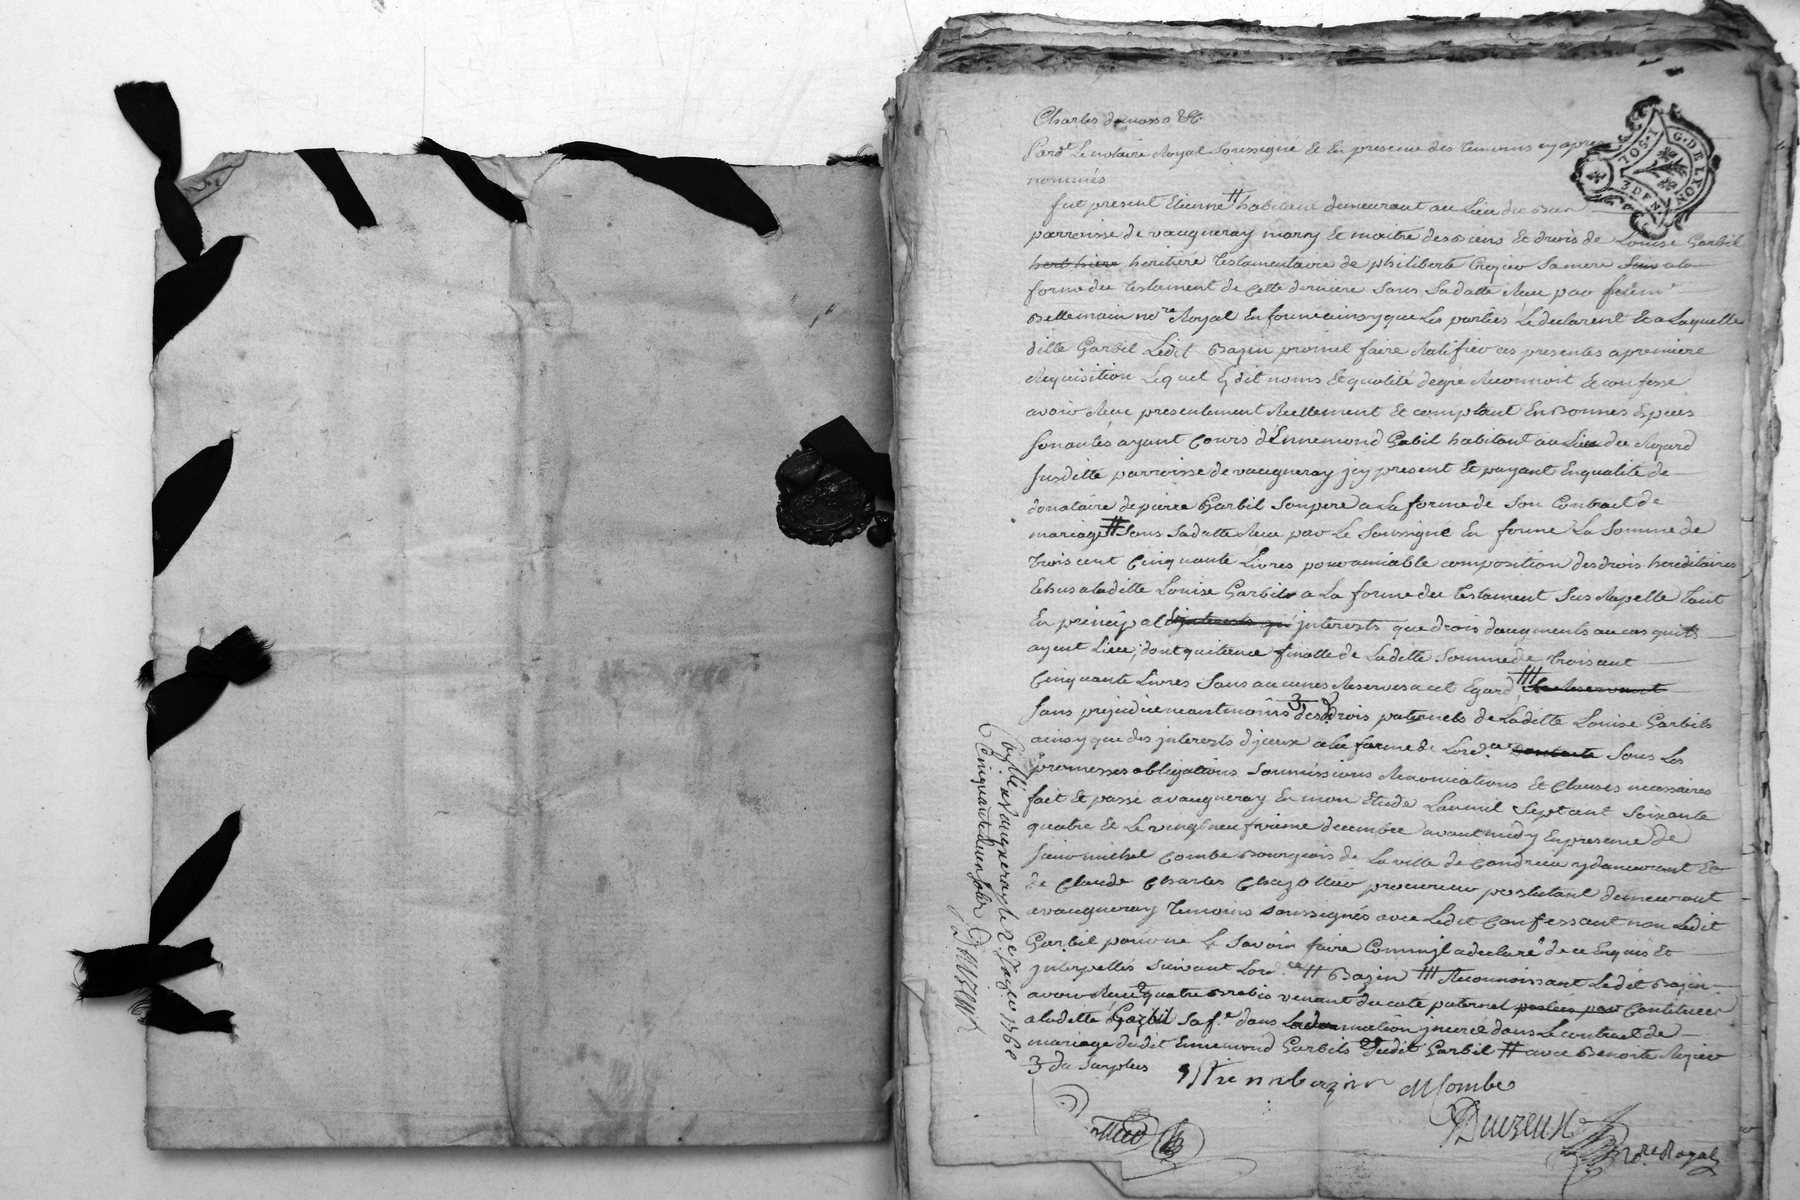 Charles demasso &c
Pardt Le notaire Royal Soussigné Et En presence des temoins cy apres
nommés
fut present Etienne # habitant demeurant au Lieu du
parroisse de vaugneray mary Et maitre des Biens Et drois de Louise Garbil
heritiere testamentaire de philiberte Crozier Samere ala
forme du testament de Cette derniere Sous Sadatte Reçu par
Bellemain nore Royal En forme ainsy que Les parties Le declarent Et a Laquelle
ditte Garbil Ledit Bazin promet faire Ratifier ces presentes a premiere
Requisition Lequel Esdit noms Et qualité degré Reconnoit Et confesse
avoir Reçu presentement Reellement Et comptant En Bonnes Especes
Sonantes ayant Cours d'Ennemond Gabil habitant au Lieu du Rozard
Susditte parroisse de vaugneray jcy present Et payant Enqualité de
donataire de pierre Garbil Sonpere a La forme de Son Contract de
mariage # Sous Sadatte Reçu par Le Soussigné En forme La Somme de
trois cent Cinquante Livres pour amiable composition des drois hereditaires
Echus aladitte Louise Garbil a La forme du testament Sus Rapellé tant
En principal Et jnterests qu' jnterests que drois daugments au cas quils
ayent Lieu; dont quitance finalle de Laditte Somme de trois cent
Cinquante Livres Sans aucunes Reserves a cet Egard /// Se Reservant
Sans prejudice neantmoins 3 des drois paternels de Laditte Louise Garbil
ainsy que des jnterests d'jceux a la forme de Lordce Sous Les
promesses obligations Soumissions Renonciations Et Clauses necessaires
fait Et passé a vaugneray En mon Etude Lan mil Sept cent Soixante
quatre Et Le vingt neufvieme decembre avant midy En presence de
Sieur michel Combe Bourgeois de La ville de Condrieu y demeurant Et
de Claude Charles Chazottier procureur postulant demeurant
a vaugneray temoins Soussignés avec Ledit Confessant non Ledit
Garbil pour ne Le Savoir faire Comme jl a declaré de ce Enquis Et
jnterpellés Suivant Lordce # Bazin /// Reconnoissant Ledit Bazin
avoir Reçu quatre Brebis venant du coté paternel Constitués
aladitte Garbil Sa fe dans jnseré dans Le contract de
mariage dudit Ennemond Garbil dudit Garbil # avec Benoite Rozier
3 du Surplus
Etiennebazin MCombe
Duizeux
nore Royal